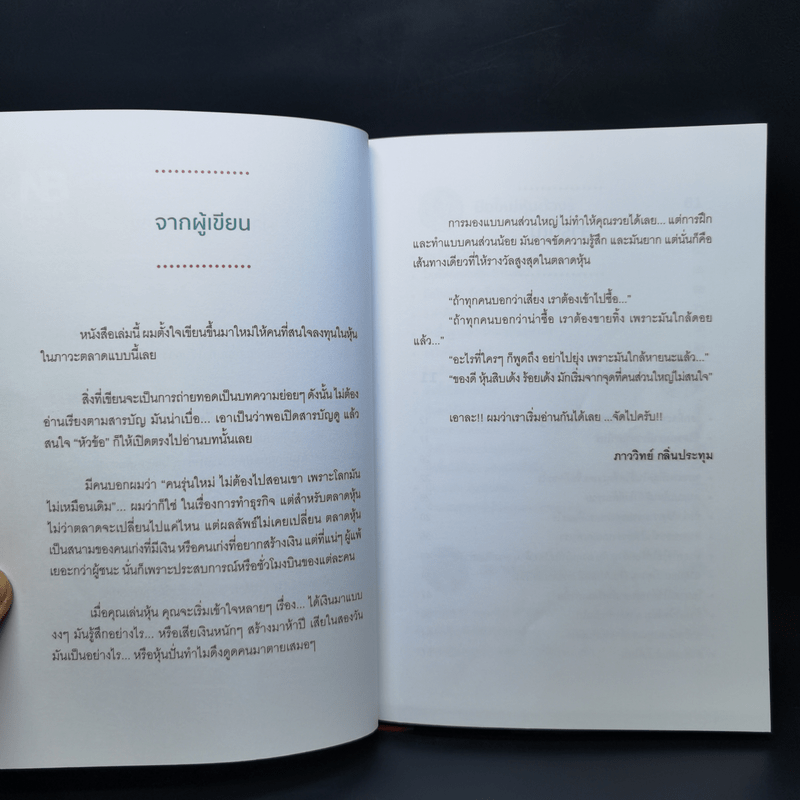 จากผู้เขียน
หนังสือเล่มนี้ ผมตั้งใจเขียนขึ้นมาใหม่ให้คนที่สนใจลงทุนในหุ้น
ในภาวะตลาดแบบนี้เลย
สิ่งที่เขียนจะเป็นการถ่ายทอดเป็นบทความย่อยๆ ดังนั้น ไม่ต้อง
อ่านเรียงตามสารบัญ มันน่าเบื่อ... เอาเป็นว่าพอเปิดสารบัญดู แล้ว
สนใจ “หัวข้อ” ก็ให้เปิดตรงไปอ่านบทนั้นเลย
มีคนบอกผมว่า “คนรุ่นใหม่ ไม่ต้องไปสอนเขา เพราะโลกมัน
ไม่เหมือนเดิม”... ผมว่าก็ใช่ ในเรื่องการทำธุรกิจ แต่สำหรับตลาดหุ้น
ไม่ว่าตลาดจะเปลี่ยนไปแค่ไหน แต่ผลลัพธ์ไม่เคยเปลี่ยน ตลาดหุ้น
เป็นสนามของคนเก่งที่มีเงิน หรือคนเก่งที่อยากสร้างเงิน แต่ที่แน่ๆ ผู้แพ้
เยอะกว่าผู้ชนะ นั่นก็เพราะประสบการณ์หรือชั่วโมงบินของแต่ละคน
เมื่อคุณเล่นหุ้น คุณจะเริ่มเข้าใจหลายๆ เรื่อง... ได้เงินมาแบบ
งงๆ มันรู้สึกอย่างไร... หรือเสียเงินหนักๆ สร้างมาห้าปี เสียในสองวัน
มันเป็นอย่างไร... หรือหุ้นปั่นทำไมดึงดูดคนมาตายเสมอๆ
การมองแบบคนส่วนใหญ่ ไม่ทำให้คุณรวยได้เลย... แต่การฝึก
และทำแบบคนส่วนน้อย มันอาจขัดความรู้สึก และมันยาก แต่นั่นก็คือ
เส้นทางเดียวที่ให้รางวัลสูงสุดในตลาดหุ้น
“ถ้าทุกคนบอกว่าเสี่ยง เราต้องเข้าไปซื้อ...”
“ถ้าทุกคนบอกว่าน่าซื้อ เราต้องขายทิ้ง เพราะมันใกล้ดอย
แล้ว...”
“อะไรที่ใครๆ ก็พูดถึง อย่าไปยุ่ง เพราะมันใกล้หายนะแล้ว...”
“ของดี หุ้นสิบเด้ง ร้อยเด้ง มักเริ่มจากจุดที่คนส่วนใหญ่ไม่สนใจ”
เอาละ!! ผมว่าเราเริ่มอ่านกันได้เลย ...จัดไปครับ!!
ภาววิทย์ กลิ่นประทุม